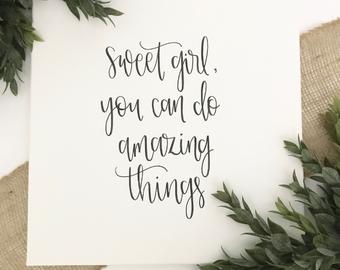 sweet girl,
you can do
amazing
things